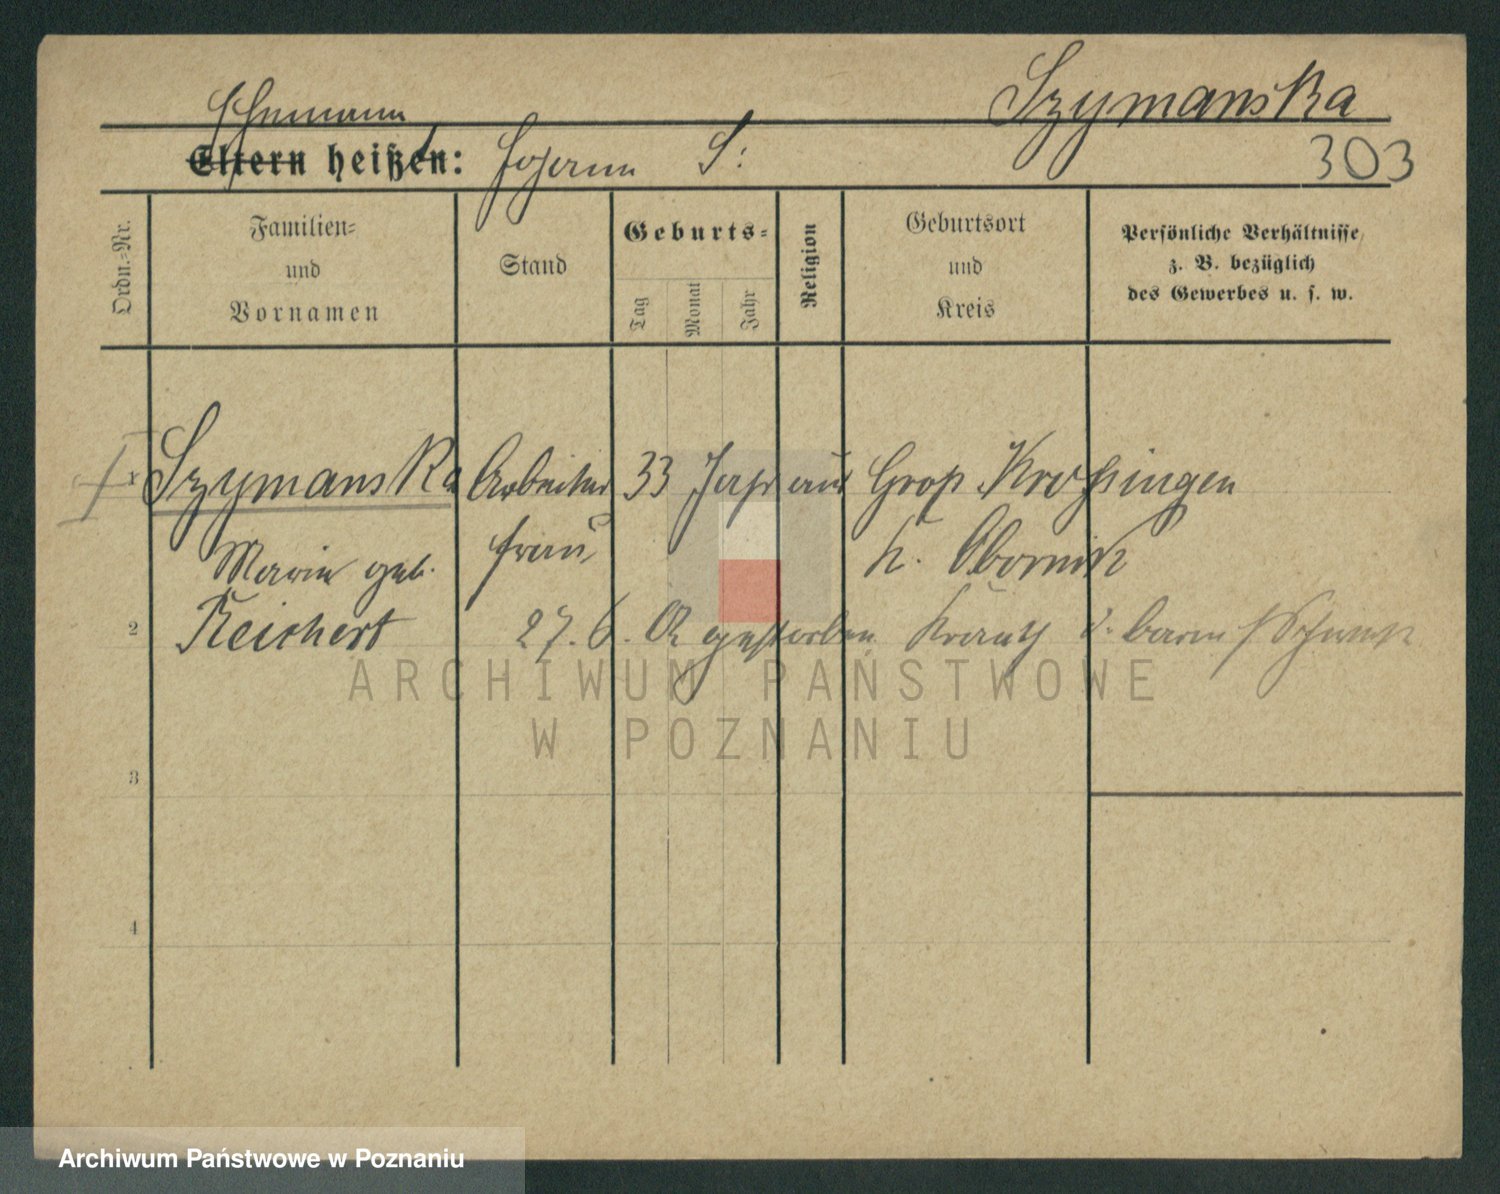 Szymanska
Ehemann
Eltern heißen: Johann S:
303
Ordn.-Nr.
Familien-
und
Vornamen
Stand
Geburts-
Tag
Monat
Jahr
Religion
Geburtsort
und
Kreis
Persönliche Verhältnisse,
z. B. bezüglich
des Gewerbes u. s. w.
Szymanska Arbeiter 33 Jahr aus Groß Kroschingen
Marie geb. frau K. Obornik
2 Reichert 27. 6. gestorben
3
4
ARCHIWUM PAŃSTWOWE
W POZNANIU
Archiwum Państwowe w Poznaniu